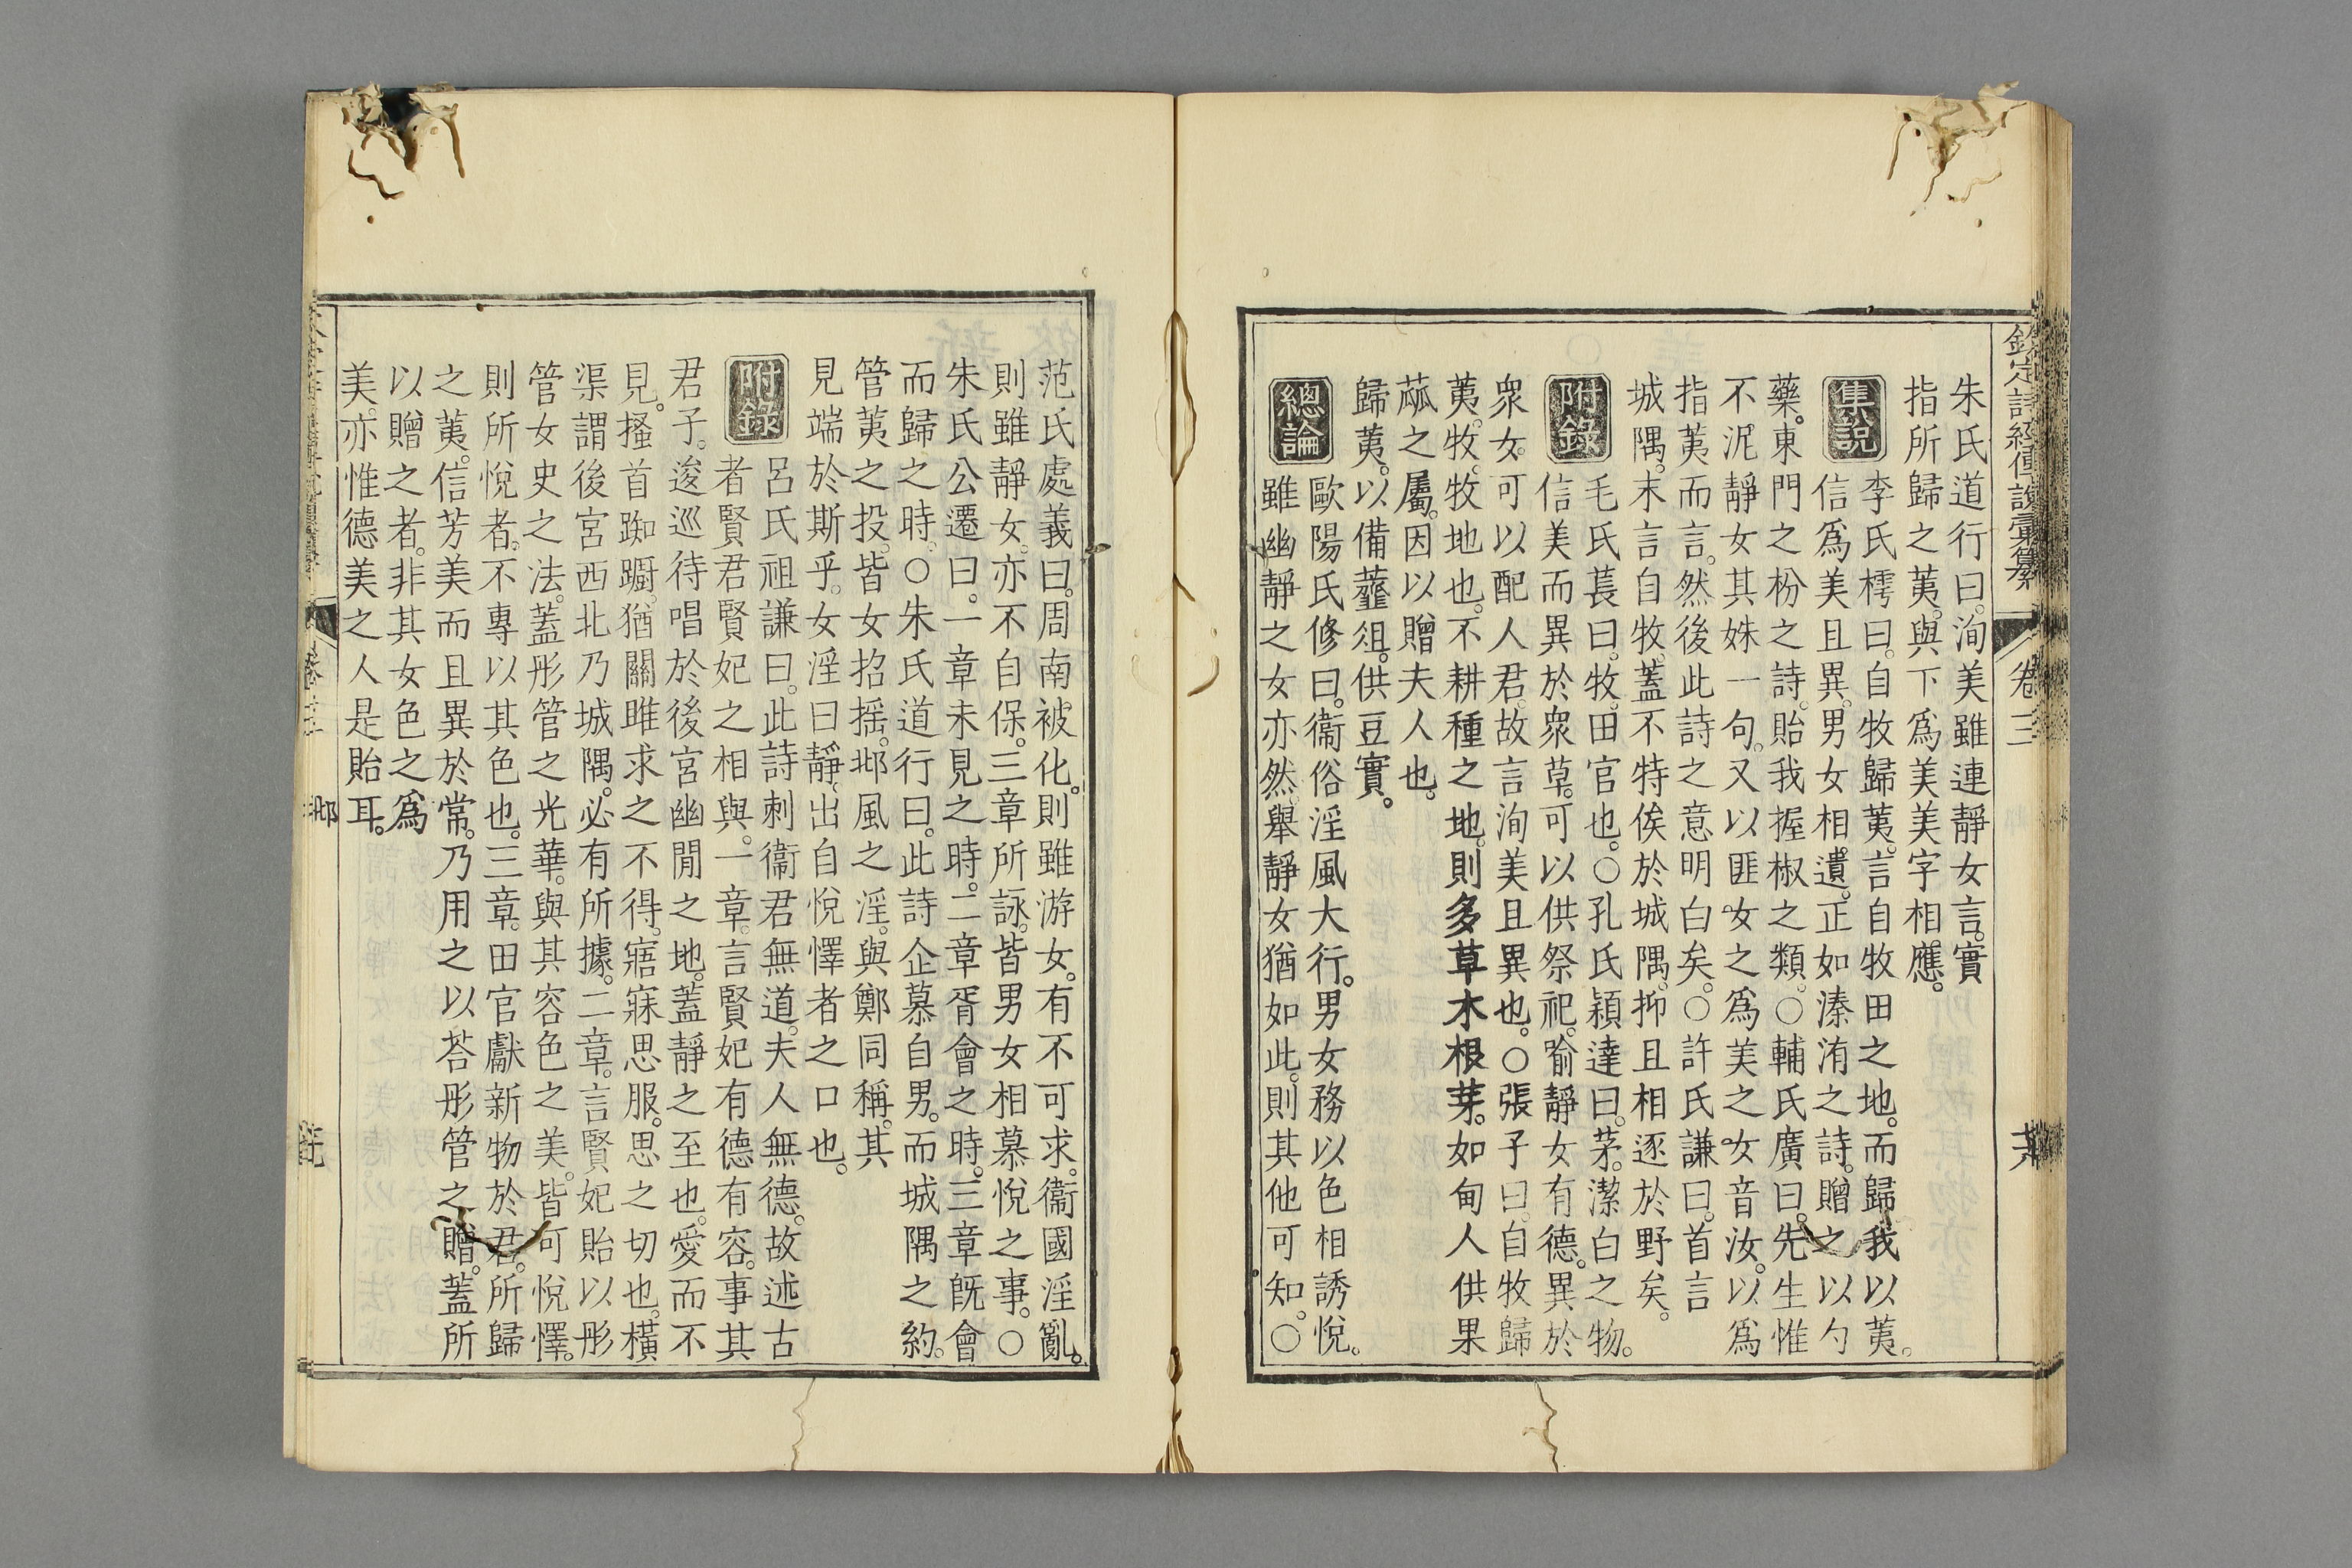 欽定詩經傳說彙纂 卷三
朱氏道行曰。洵美雖連靜女言。實
指所歸之荑。與下爲美美字相應。
集說 李氏樗曰。自牧歸荑。言自牧田之地。而歸我以荑。
信爲美且異。男女相遺。正如溱洧之詩。贈之以勺
藥。東門之枌之詩。貽我握椒之類。○輔氏廣曰。先生惟
不泥靜女其姝一句。又以匪女之爲美之女音汝。以爲
指荑而言。然後此詩之意明白矣。○許氏謙曰。首言
城隅。末言自牧。蓋不特俟於城隅。抑且相逐於野矣。
附錄 毛氏萇曰。牧。田官也。○孔氏穎達曰。茅。潔白之物。
信美而異於衆草。可以供祭祀。喻靜女有德。異於
衆女。可以配人君。故言洵美且異也。○張子曰。自牧歸
荑。牧。牧地也。不耕種之地。則多草木根芽。如甸人供果
蓏之屬。因以贈夫人也。
歸荑。以備虀俎。供豆實。
總論 歐陽氏修曰。衞俗淫風大行。男女務以色相誘悅。
雖幽靜之女亦然。舉靜女猶如此。則其他可知。○
范氏處義曰。周南被化。則雖游女。有不可求。衞國淫亂。
則雖靜女。亦不自保。三章所詠。皆男女相慕悅之事。○
朱氏公遷曰。一章未見之時。二章胥會之時。三章旣會
而歸之時。○朱氏道行曰。此詩企慕自男。而城隅之約。
管荑之投。皆女招搖。邶風之淫。與鄭同稱。其
見端於斯乎。女淫曰靜。出自悅懌者之口也。
附錄 呂氏祖謙曰。此詩刺衞君無道。夫人無德。故述古
者賢君賢妃之相與。一章。言賢妃有德有容。事其
君子。逡巡待唱於後宮幽閒之地。蓋靜之至也。愛而不
見。搔首踟躕。猶關雎求之不得。寤寐思服。思之切也。橫
渠謂後宮西北乃城隅。必有所據。二章。言賢妃貽以彤
管女史之法。蓋彤管之光華。與其容色之美。皆可悅懌。
則所悅者。不專以其色也。三章。田官獻新物於君。所歸
之荑。信芳美而且異於常。乃用之以荅彤管之贈。蓋所
以贈之者。非其女色之爲
美。亦惟德美之人是貽耳。
卷三 邶